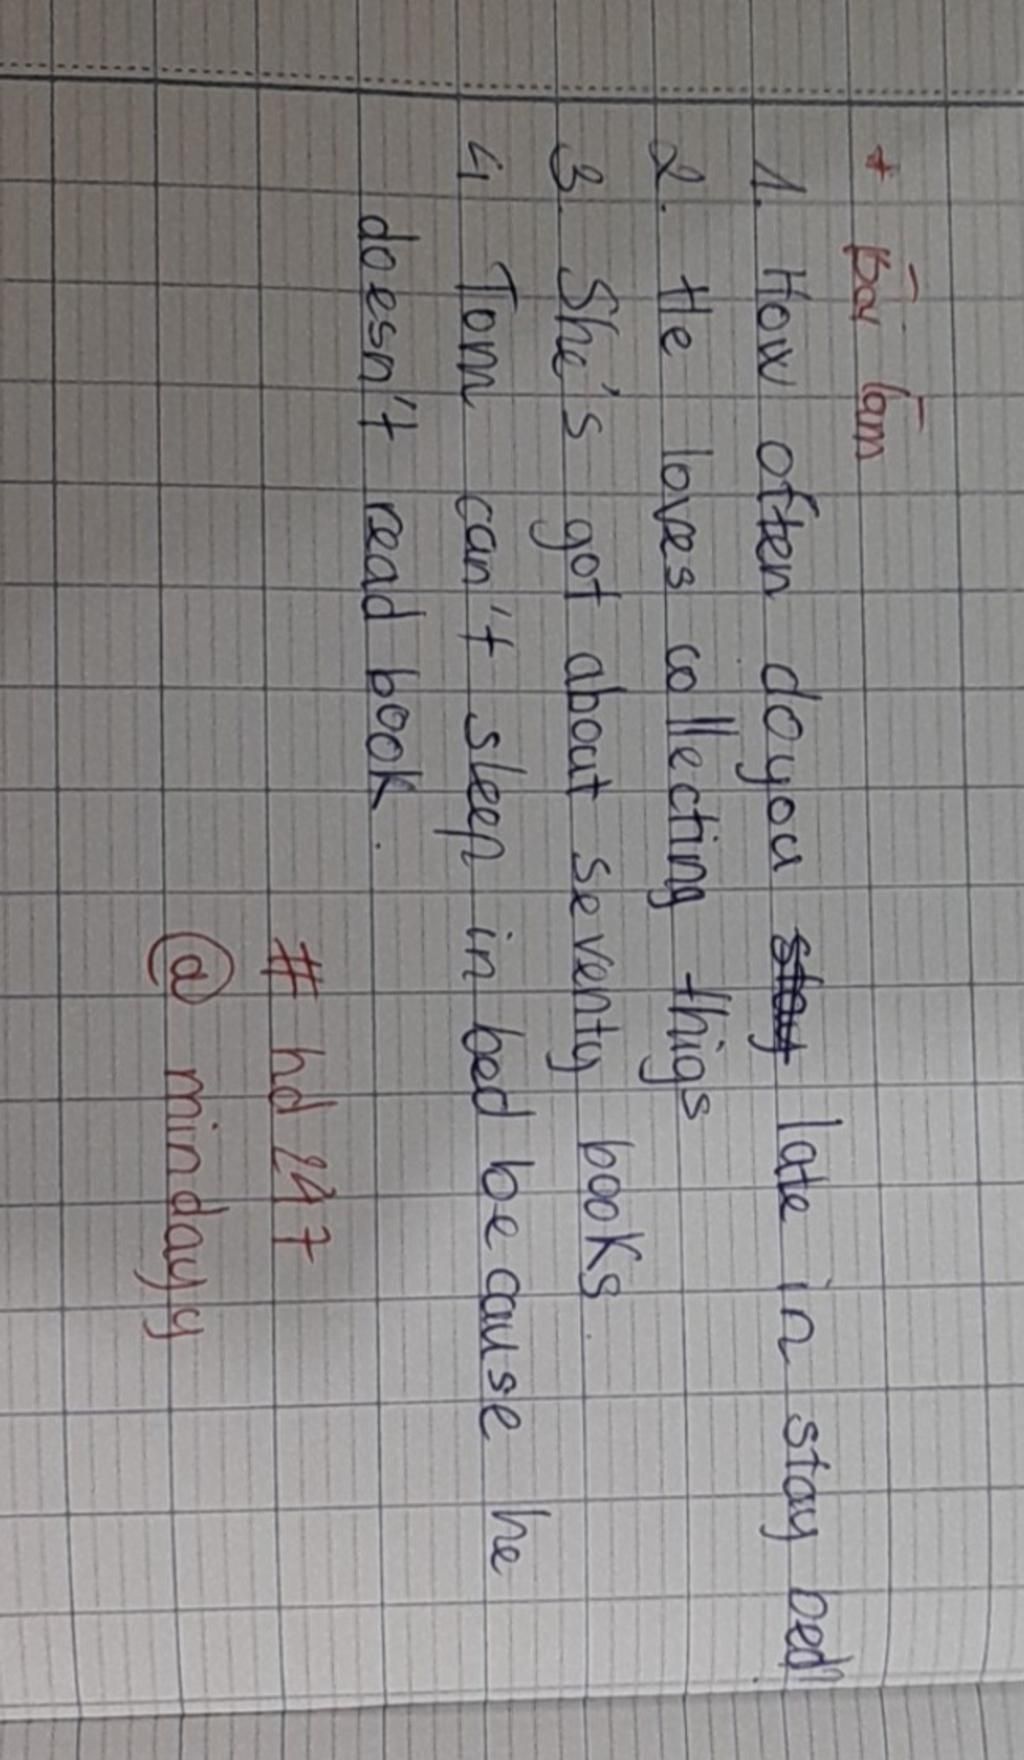 + Bài làm
1. How often do you late in stay bed?
2. He loves collecting thigs
3. She's got about seventy books.
4 Tom can't sleep in bed because he
doesn't read book.
# hd 247
@ mindayy